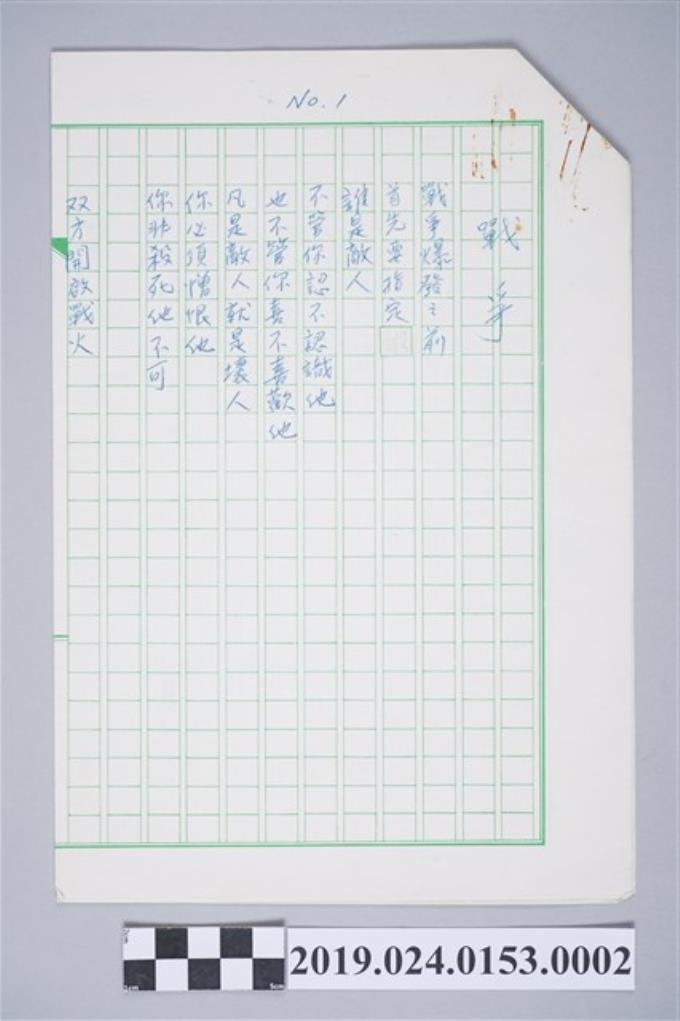 No. 1
戰爭
戰爭爆發之前
首先要指定
誰是敵人
不管你認不認識他
也不管你喜不喜歡他
凡是敵人就是壞人
你必須憎恨他
你非殺死他不可
双方開啟戰火
2019.024.0153.0002